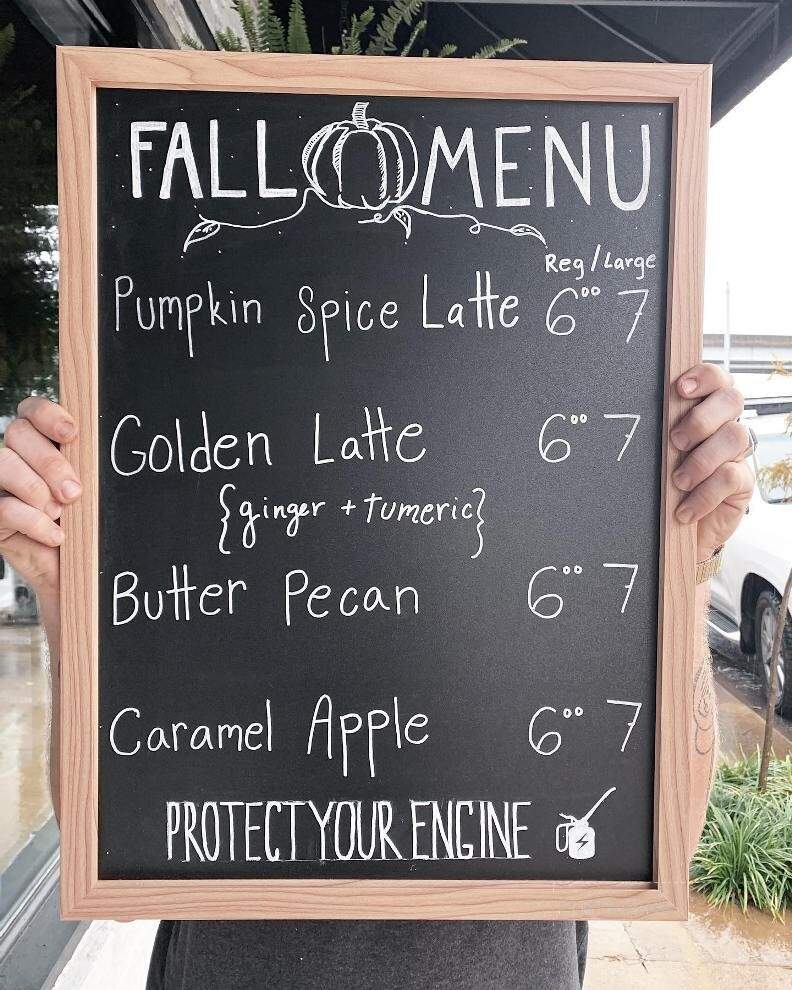 FALL MENU
Reg/Large
Pumpkin Spice Latte 6⁰⁰ 7
Golden Latte 6⁰⁰ 7
{ginger + tumeric}
Butter Pecan 6⁰⁰ 7
Caramel Apple 6⁰⁰ 7
PROTECT YOUR ENGINE